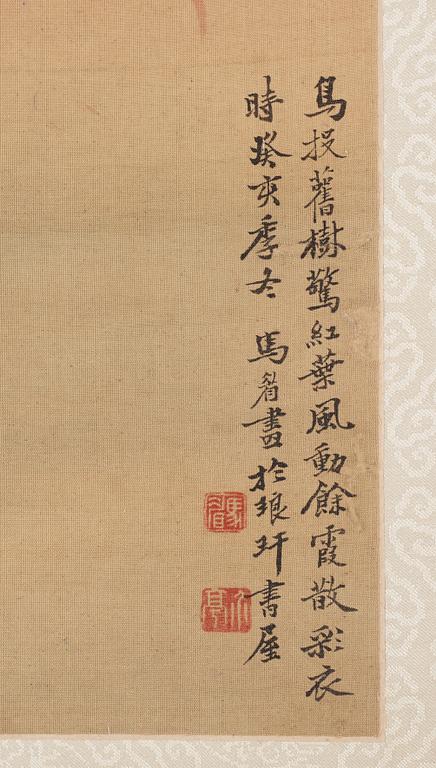 鳥投舊樹驚紅葉風動餘霞散彩衣
時癸亥季冬 馬眉畫於琅玕書屋
馬眉